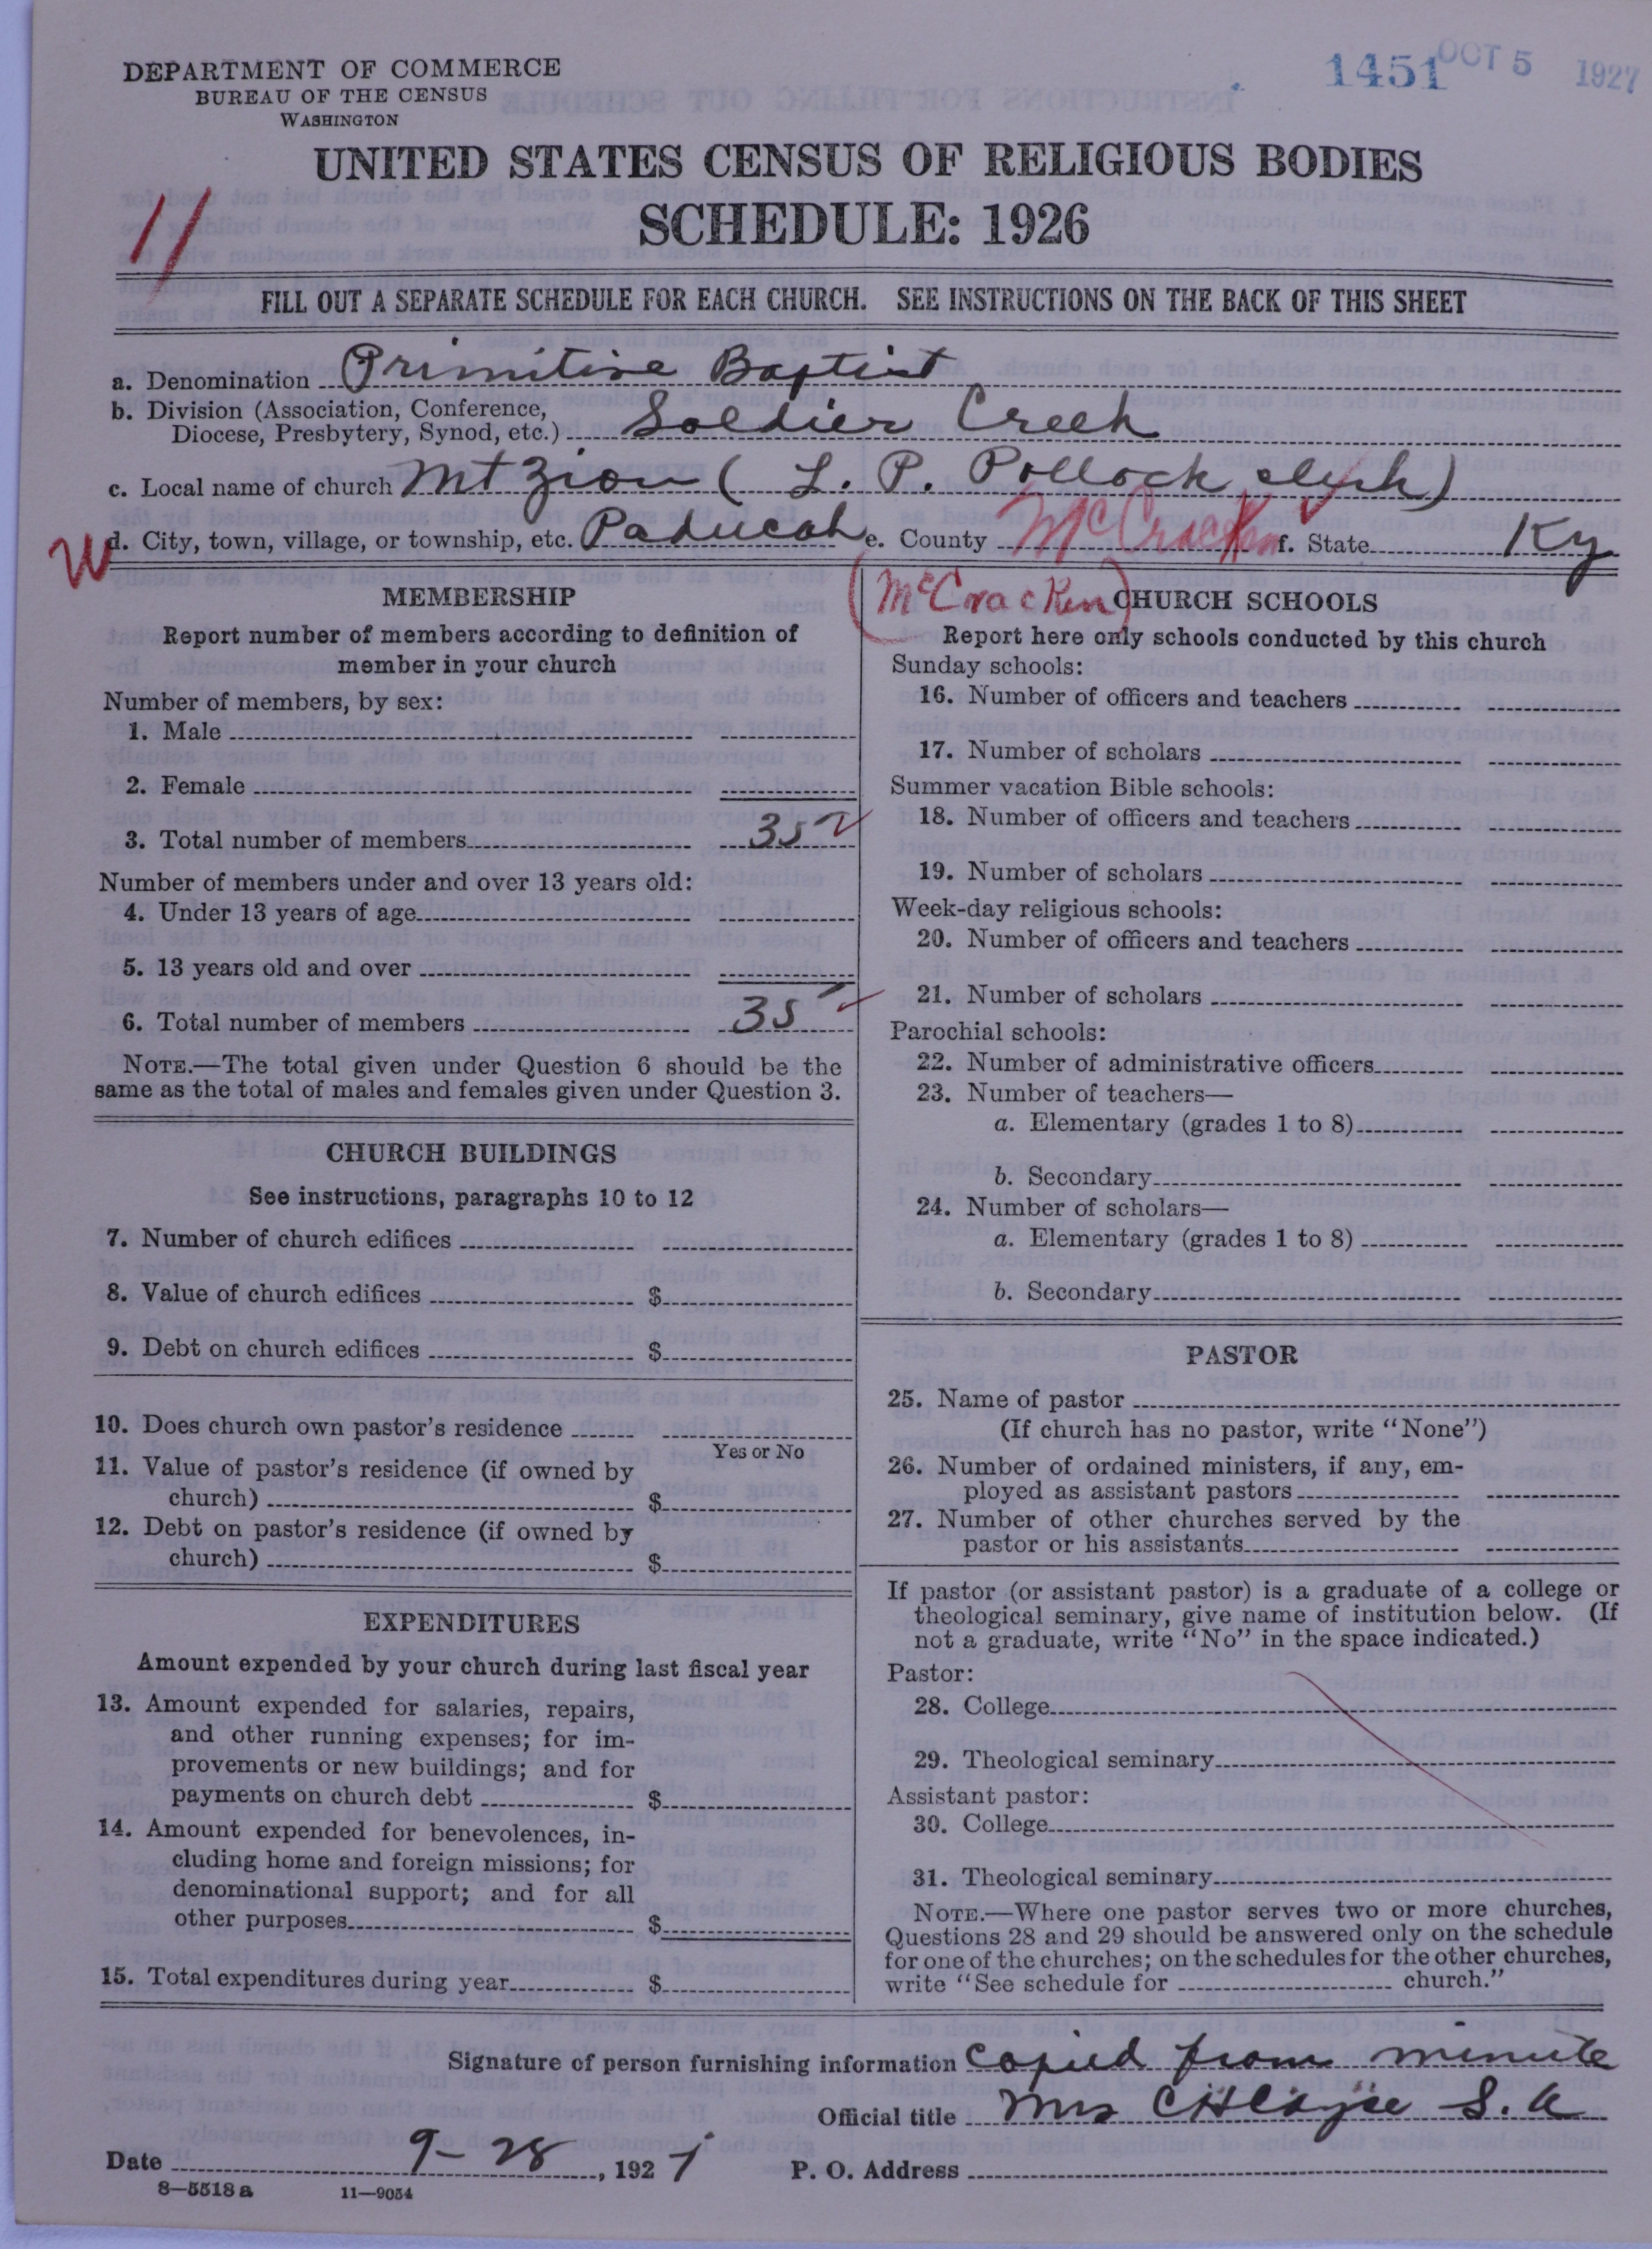 1451 OCT 5 1927
DEPARTMENT OF COMMERCE
BUREAU OF THE CENSUS
WASHINGTON
UNITED STATES CENSUS OF RELIGIOUS BODIES
SCHEDULE: 1926
11
FILL OUT A SEPARATE SCHEDULE FOR EACH CHURCH. SEE INSTRUCTIONS ON THE BACK OF THIS SHEET
a. Denomination Primitive Baptist
b. Division (Association, Conference,
Diocese, Presbytery, Synod, etc.) Soldier Creek
c. Local name of church Mt Zion ( L. P. Pollock clerk)
W d. City, town, village, or township, etc. Paducah e. County McCracken f. State Ky
(McCracken)
MEMBERSHIP
Report number of members according to definition of
member in your church
Number of members, by sex:
1. Male
2. Female
3. Total number of members 35
Number of members under and over 13 years old:
4. Under 13 years of age
5. 13 years old and over
6. Total number of members 35
NOTE.—The total given under Question 6 should be the
same as the total of males and females given under Question 3.
CHURCH BUILDINGS
See instructions, paragraphs 10 to 12
7. Number of church edifices
8. Value of church edifices $
9. Debt on church edifices $
10. Does church own pastor's residence
Yes or No
11. Value of pastor's residence (if owned by
church) $
12. Debt on pastor's residence (if owned by
church) $
EXPENDITURES
Amount expended by your church during last fiscal year
13. Amount expended for salaries, repairs,
and other running expenses; for im-
provements or new buildings; and for
payments on church debt $
14. Amount expended for benevolences, in-
cluding home and foreign missions; for
denominational support; and for all
other purposes $
15. Total expenditures during year $
CHURCH SCHOOLS
Report here only schools conducted by this church
Sunday schools:
16. Number of officers and teachers
17. Number of scholars
Summer vacation Bible schools:
18. Number of officers and teachers
19. Number of scholars
Week-day religious schools:
20. Number of officers and teachers
21. Number of scholars
Parochial schools:
22. Number of administrative officers
23. Number of teachers—
a. Elementary (grades 1 to 8)
b. Secondary
24. Number of scholars—
a. Elementary (grades 1 to 8)
b. Secondary
PASTOR
25. Name of pastor
(If church has no pastor, write "None")
26. Number of ordained ministers, if any, em-
ployed as assistant pastors
27. Number of other churches served by the
pastor or his assistants
If pastor (or assistant pastor) is a graduate of a college or
theological seminary, give name of institution below. (If
not a graduate, write "No" in the space indicated.)
Pastor:
28. College
29. Theological seminary
Assistant pastor:
30. College
31. Theological seminary
NOTE.—Where one pastor serves two or more churches,
Questions 28 and 29 should be answered only on the schedule
for one of the churches; on the schedules for the other churches,
write "See schedule for church."
Signature of person furnishing information copied from minute
Official title Mrs S. A
Date 9-28, 1927 P. O. Address
8—5518a 11—9054